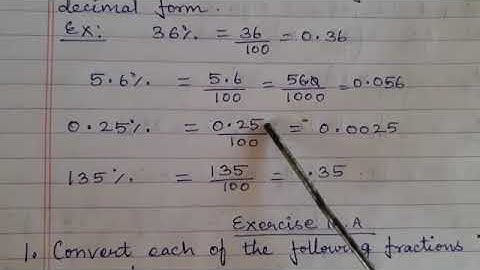 decimal form.
Ex: 36% = 36/100 = 0.36
5.6% = 5.6/100 = 560/1000 = 0.056
0.25% = 0.25/100 = 0.0025
135% = 135/100 = .35
Exercise A
1. Convert each of the following fractions